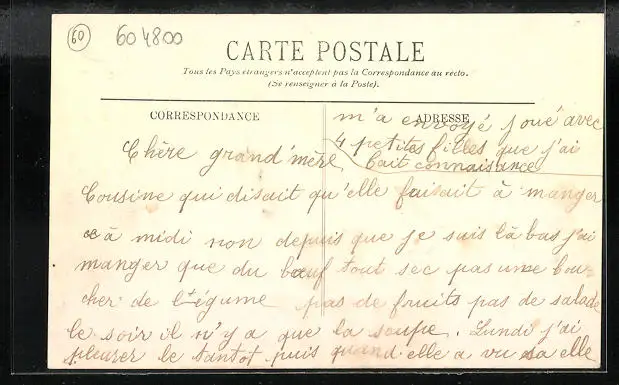 60
604800
CARTE POSTALE
Tous les Pays étrangers n'acceptent pas la Correspondance au recto.
(Se renseigner à la Poste).
CORRESPONDANCE
ADRESSE
Chère grand'mère
Cousine qui disait qu'elle faisait à manger
à midi non depuis que je suis là bas j'ai
manger que du bœuf tout sec pas une bou-
cher de légume pas de fruits pas de salade
le soir il n'y a que la soupe. Lundi j'ai
pleurer le tantot puis quand elle a vu sa elle
m'a envoyé joué avec
4 petites filles que j'ai
fait connaisance